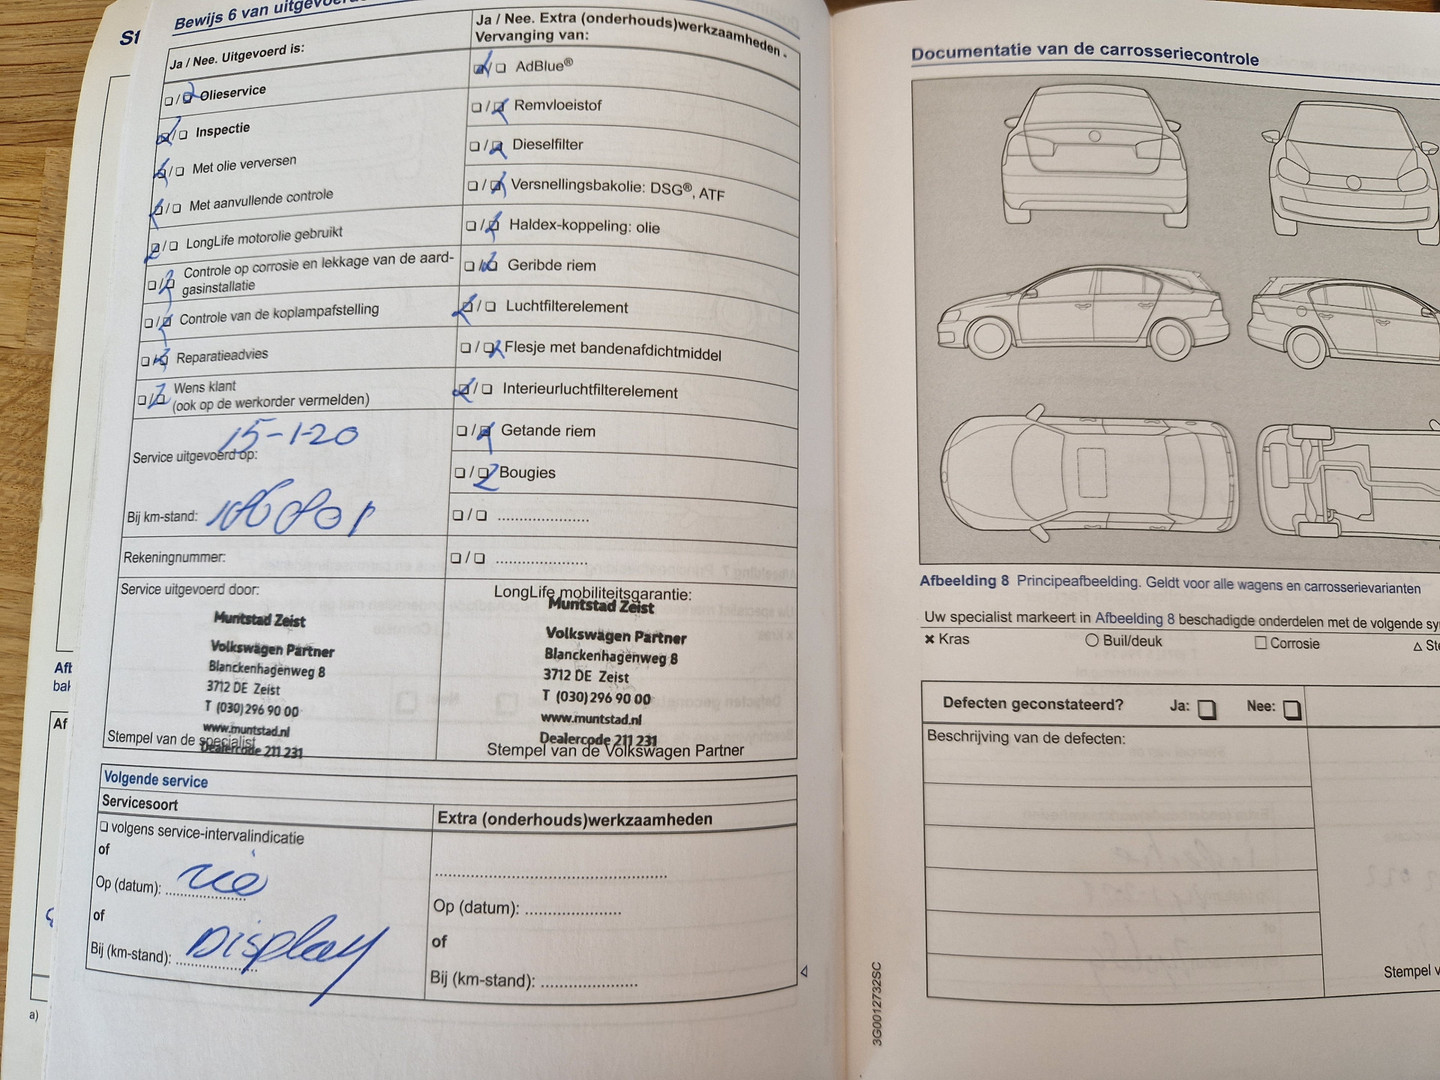 St
Bewijs 6 van
Ja / Nee. Uitgevoerd is:
❏ / ❏ Olieservice
❏ / ❏ Inspectie
❏ / ❏ Met olie verversen
❏ / ❏ Met aanvullende controle
❏ / ❏ LongLife motorolie gebruikt
❏ / ❏ Controle op corrosie en lekkage van de aard-
gasinstallatie
❏ / ❏ Controle van de koplampafstelling
❏ / ❏ Reparatieadvies
❏ / ❏ Wens klant
(ook op de werkorder vermelden)
15-1-20
Service uitgevoerd op:
Bij km-stand:
Rekeningnummer:
Service uitgevoerd door:
Muntstad Zeist
Volkswagen Partner
Blanckenhagenweg 8
3712 DE Zeist
T (030) 296 90 00
www.muntstad.nl
Dealercode 211 231
Stempel van de specialist
Ja / Nee. Extra (onderhouds)werkzaamheden -
Vervanging van:
❏ / ❏ AdBlue®
❏ / ❏ Remvloeistof
❏ / ❏ Dieselfilter
❏ / ❏ Versnellingsbakolie: DSG®, ATF
❏ / ❏ Haldex-koppeling: olie
❏ / ❏ Geribde riem
❏ / ❏ Luchtfilterelement
❏ / ❏ Flesje met bandenafdichtmiddel
❏ / ❏ Interieurluchtfilterelement
❏ / ❏ Getande riem
❏ / ❏ Bougies
❏ / ❏ .....................
❏ / ❏ .....................
LongLife mobiliteitsgarantie:
Muntstad Zeist
Volkswagen Partner
Blanckenhagenweg 8
3712 DE Zeist
T (030) 296 90 00
www.muntstad.nl
Dealercode 211 231
Stempel van de Volkswagen Partner
Volgende service
Servicesoort
❏ volgens service-intervalindicatie
of
Op (datum): zie
of
Bij (km-stand): Display
Extra (onderhouds)werkzaamheden
Op (datum): .....................
of
Bij (km-stand): .....................
Af
Documentatie van de carrosseriecontrole
Afbeelding 8 Principeafbeelding. Geldt voor alle wagens en carrosserievarianten
Uw specialist markeert in Afbeelding 8 beschadigde onderdelen met de volgende
× Kras ○ Buil/deuk □ Corrosie △
Defecten geconstateerd? Ja: ❏ Nee: ❏
Beschrijving van de defecten:
Stempel
3G0012732SC
a)